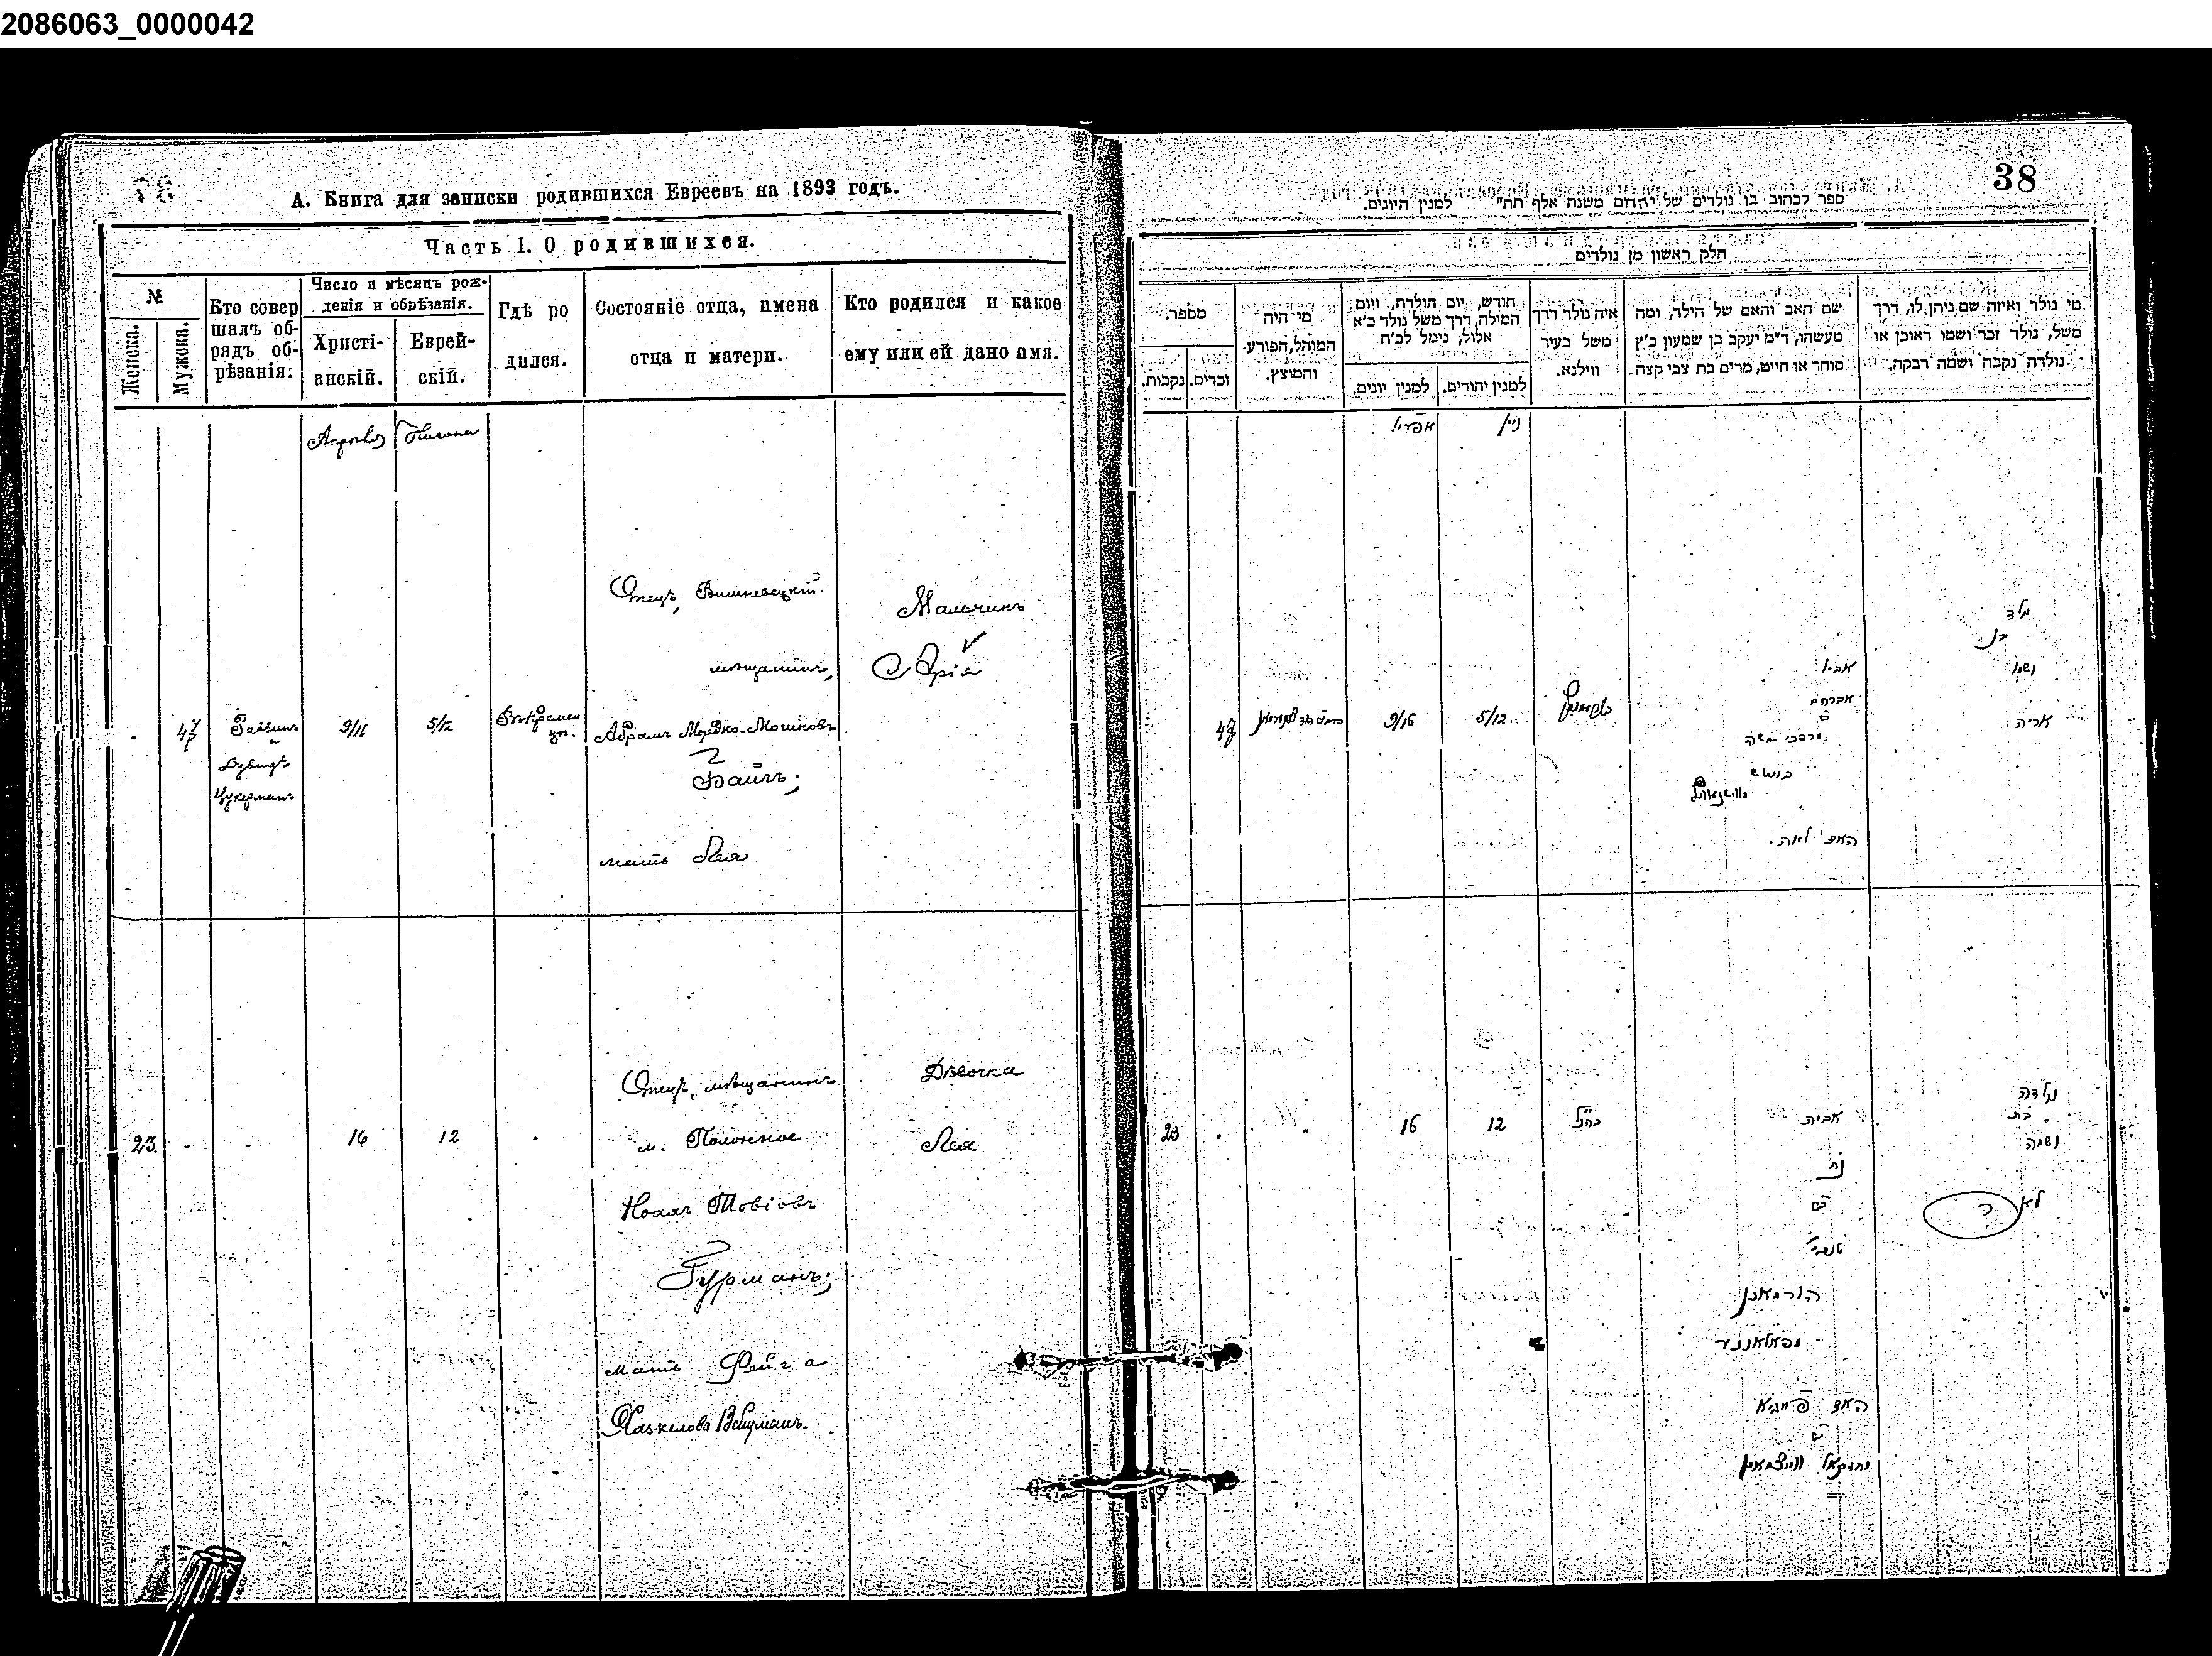 2086063_0000042
А. Книга для записки родившихся Евреевъ на 1893 годъ.
Часть I. О родившихся.
№
Женска.
Мужска.
Кто совер
шалъ об-
рядъ об-
рѣзанія.
Число и мѣсяцъ рож-
денія и обрѣзанія.
Христі-
анскій.
Еврей-
скій.
Гдѣ ро
дился.
Состояніе отца, имена
отца и матери.
Кто родился и какое
ему или ей дано имя.
47
Цукерманъ
9/16
5/12
Отецъ, Вишневецкій
мѣщанинъ,
Абрамъ Мордко-Мошковъ
мать Лея
Мальчикъ
Арія
23.
16
12
Отецъ, мѣщанинъ
м. Полонное
Товіовъ
Гурманъ;
мать Фейга
Девочка
Лея
38
ספר לכתוב בו נולדים של יהדום משנת אלף תת" למנין היונים.
חלק ראשון מן נולדים
מספר.
זכרים.
נקבות.
מי היה
המוהל, הפורע
והמוצץ.
חודש, יום הולדת, ויום
המילה, דרך משל נולד כ'א
אלול, נימל לכ'ח
למנין יהודים.
למנין יונים.
איה נולד דרך
משל בעיר
ווילנא.
שם האב והאם של הילד, ומה
מעשהו, ד"מ יעקב בן שמעון כ'ץ
סוחר או חייט, מרים בת צבי קצה
מי נולד ואיזה שם ניתן לו, דרך
משל, נולד זכר ושמו ראובן או
נולדה נקבה ושמה רבקה.
ניסן
אפריל
47
9/16
5/12
אביו
אברהם
מרדכי משה
האם לאה.
נולד
בן
ושמו
אריה
23
16
12
אביה
נח
הורמאן
האם פייגא
נולדה
בת
ושמה
לאה